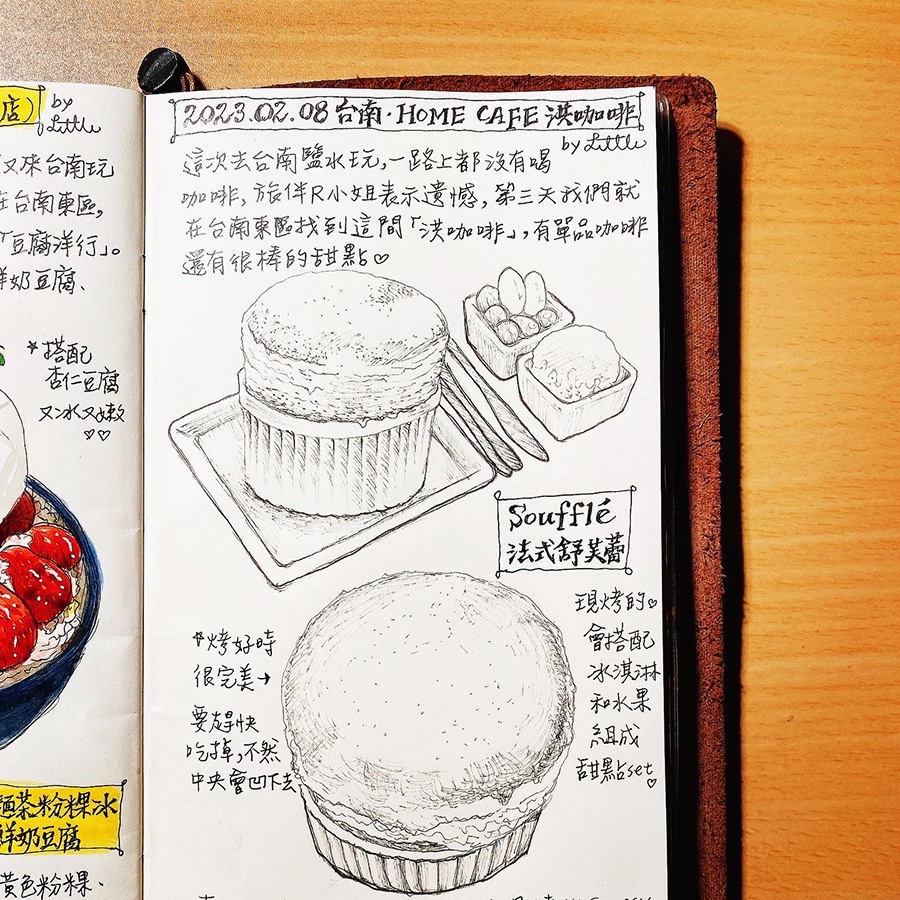 店）
by Little
又來台南玩
在台南東區,
「豆腐洋行」。
鮮奶豆腐、
*搭配
杏仁豆腐
又冰又嫩
♡♡
麵茶粉粿冰
鮮奶豆腐
黃色粉粿、
2023.02.08 台南·HOME CAFE 洪咖啡
by Little
這次去台南鹽水玩,一路上都沒有喝
咖啡,旅伴R小姐表示遺憾,第三天我們就
在台南東區找到這間「洪咖啡」,有單品咖啡
還有很棒的甜點♡
Soufflé
法式舒芙蕾
現烤的♡
會搭配
冰淇淋
和水果
組成
甜點set
♡
*烤好時
很完美→
要趕快
吃掉,不然
中央會凹下去